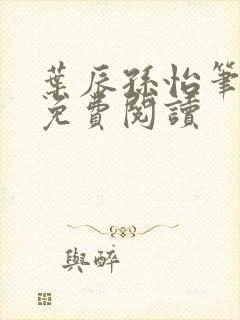 葉辰孫怡筆
免費閱讀
與醉